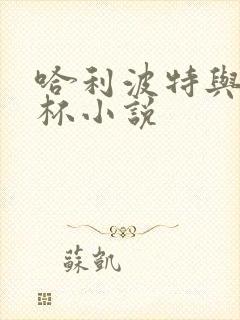 哈利波特與
杯小說
蘇凱